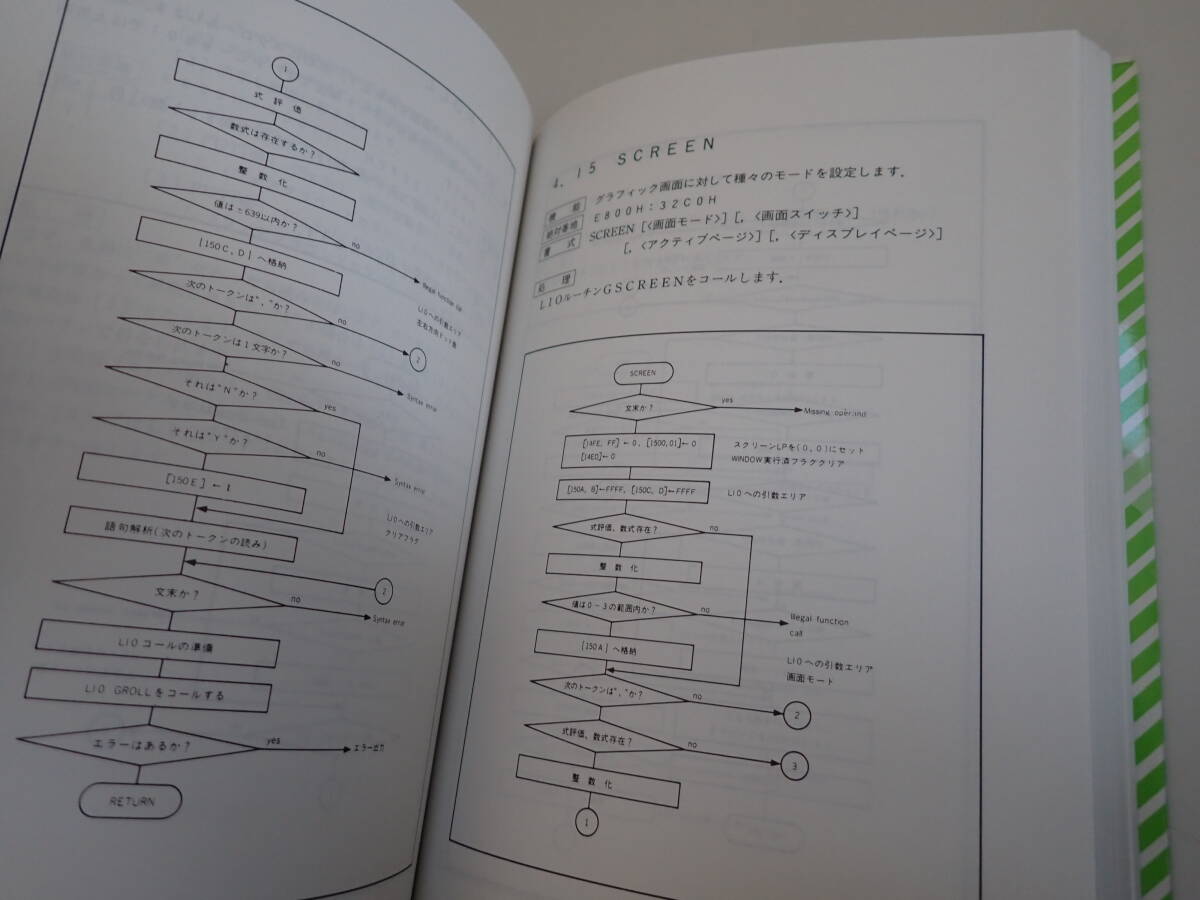 1
式 評 価
数式は存在するか?
整 数 化
値は±639以内か?
no
Illegal function call
[150C, D]へ格納
LIOへの引数エリア
左右方向ドット数
次のトークンは","か?
no
2
次のトークンは1文字か?
no
Syntax error
それは"N"か?
yes
それは"Y"か?
no
Syntax error
[150E]←1
LIOへの引数エリア
クリアフラグ
語句解析(次のトークンの読み)
2
文末か?
no
Syntax error
LIOコールの準備
LIO GROLLをコールする
エラーはあるか?
yes
エラー出力
RETURN
4. 15 SCREEN
機 能 グラフィック画面に対して種々のモードを設定します.
絶対番地 E800H:32C0H
書 式 SCREEN [〈画面モード〉][, 〈画面スイッチ〉]
[, 〈アクティブページ〉][, 〈ディスプレイページ〉]
処 理
LIOルーチンGSCREENをコールします.
SCREEN
文末か?
yes
Missing operand
[14FE, FF]←0, [1500,01]←0
[14E0]←0
スクリーンLPを(0, 0)にセット
WINDOW実行済フラグクリア
[150A, B]←FFFF, [150C, D]←FFFF
LIOへの引数エリア
式評価、数式存在?
no
整 数 化
値は0-3の範囲内か?
no
Illegal function
call
[150A]へ格納
LIOへの引数エリア
画面モード
次のトークンは","か?
no
2
式評価、数式存在?
no
3
整 数 化
1